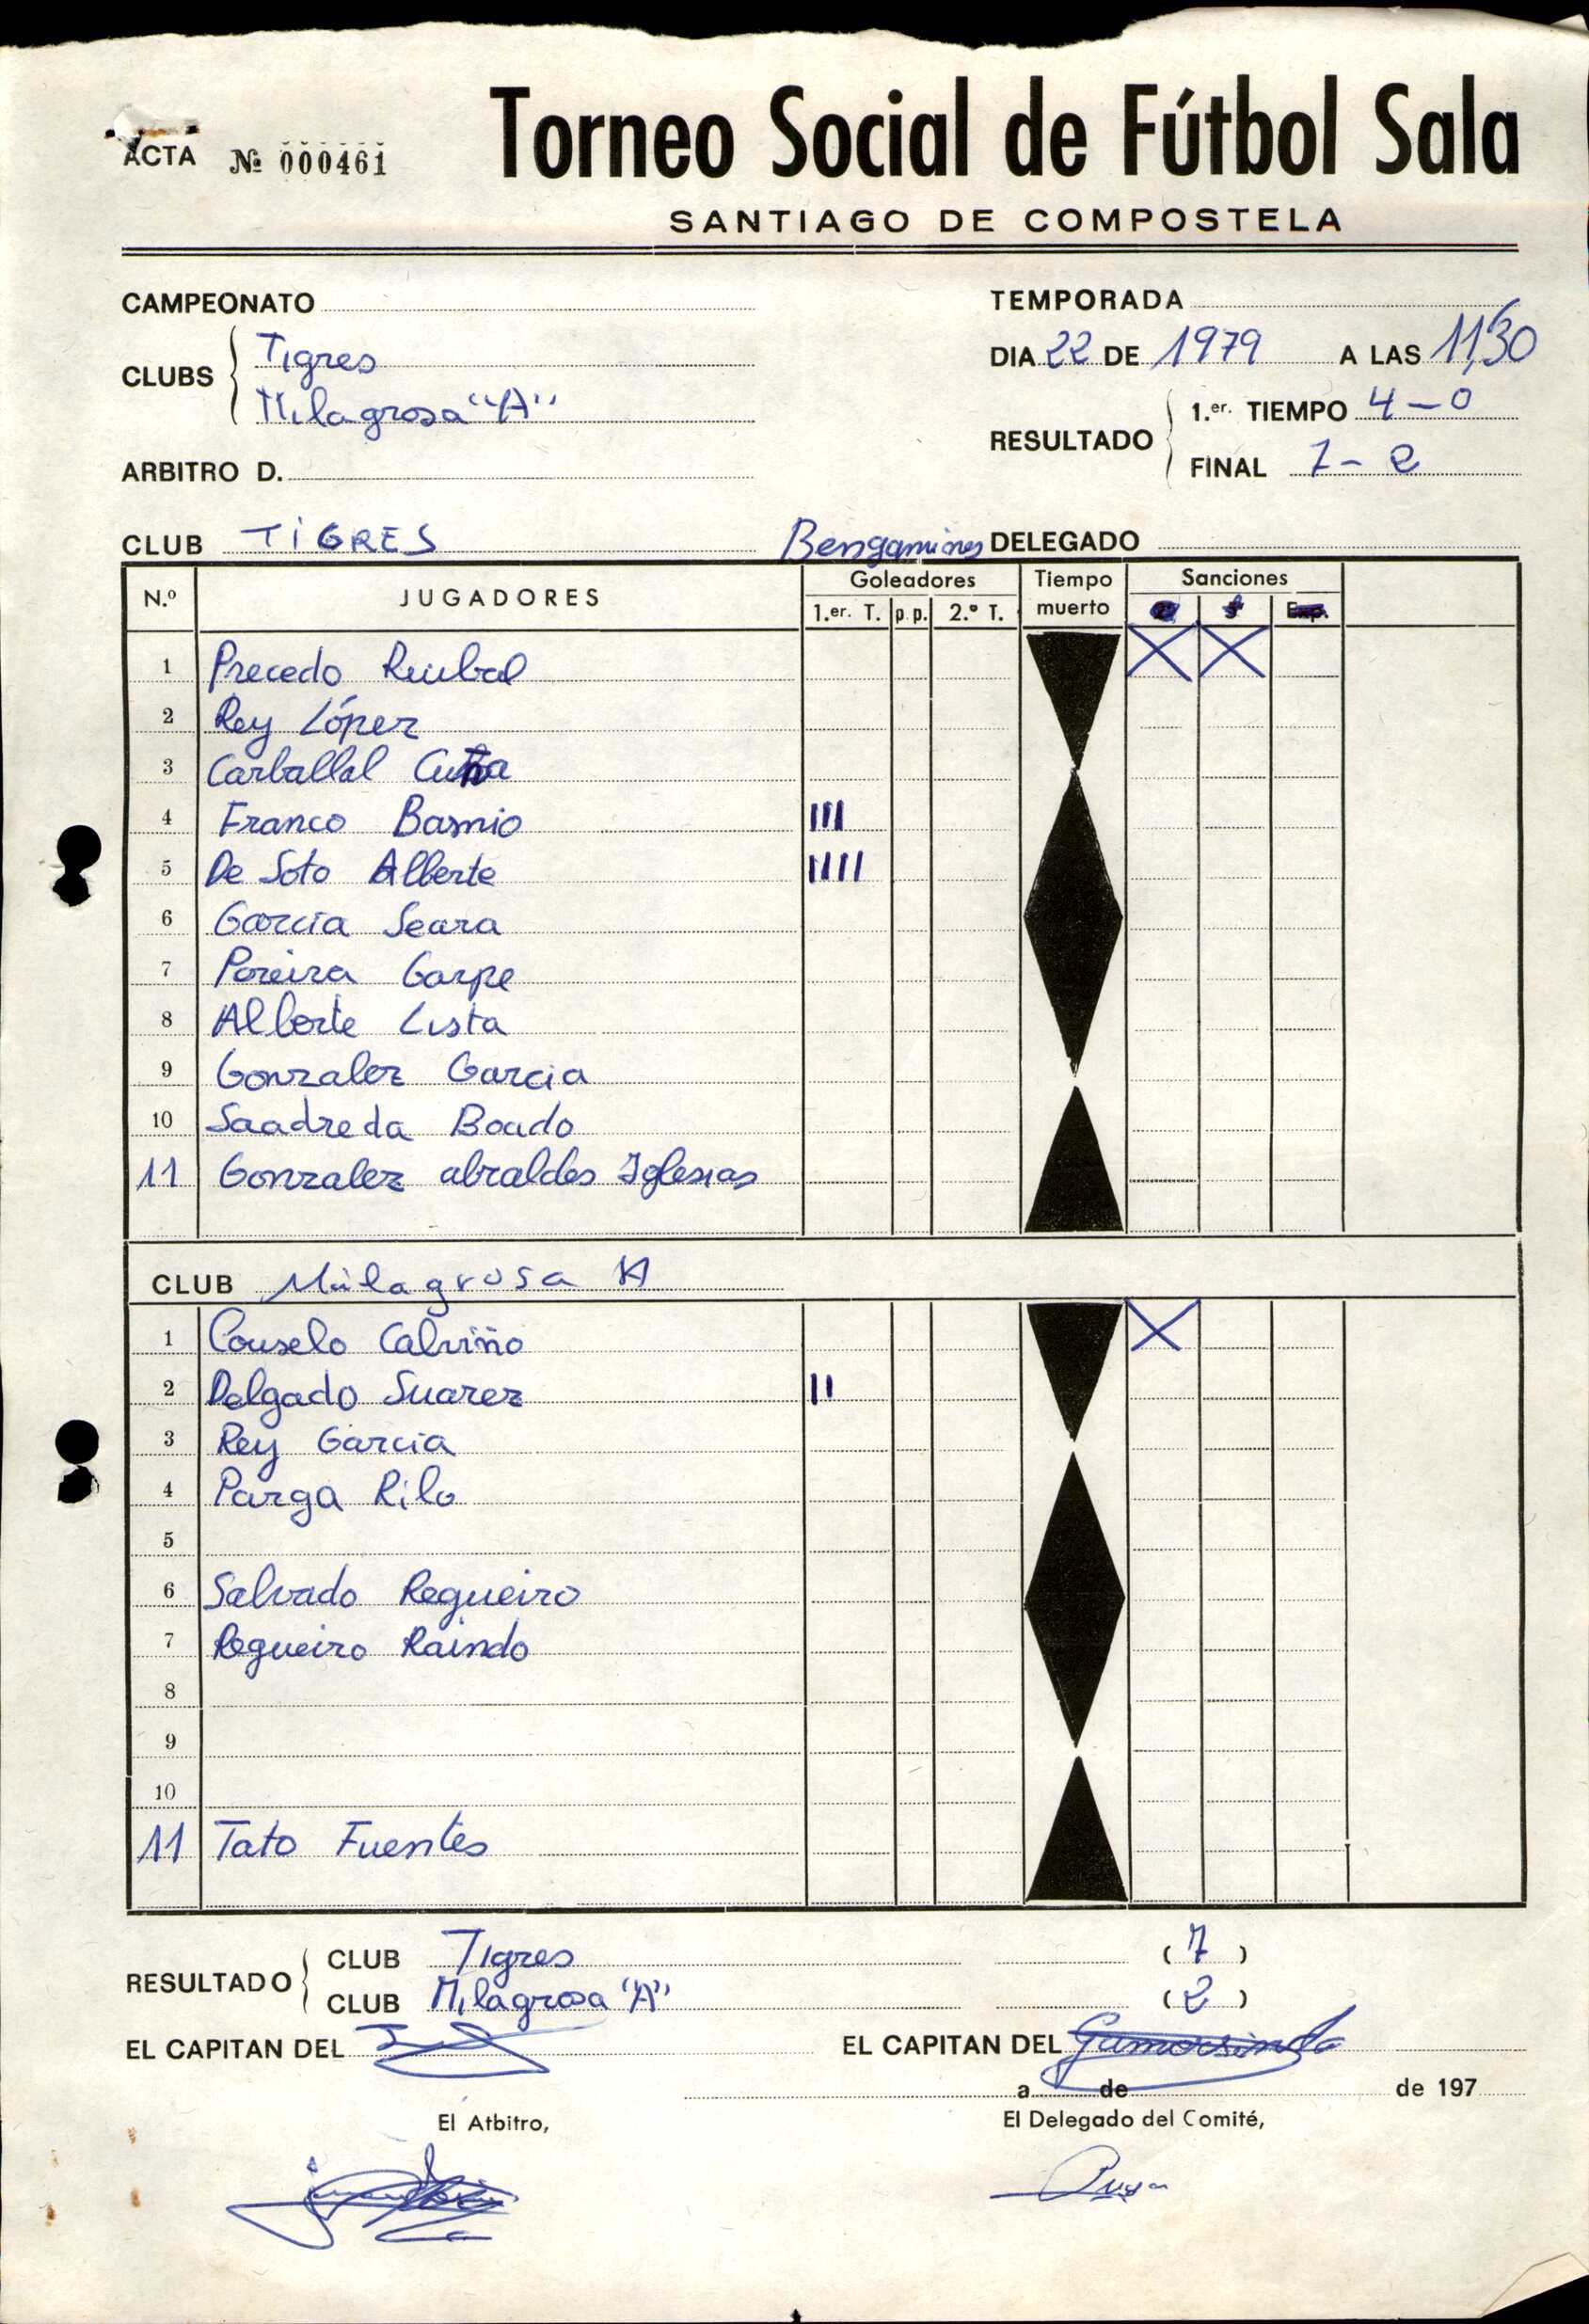 ACTA Nº 000461
Torneo Social de Fútbol Sala
SANTIAGO DE COMPOSTELA
CAMPEONATO
TEMPORADA
CLUBS Tigres
Milagrosa "A"
DIA 22 DE 1979 A LAS 11,30
RESULTADO 1.er. TIEMPO 4-0
FINAL 7-2
ARBITRO D.
CLUB TIGRES Bengamines DELEGADO
N.º JUGADORES Goleadores Tiempo muerto Sanciones
1.er. T. p.p. 2.º T. Exp.
1 Precedo Reubal
2 Rey López
3 Carballal Cuña
4 Franco Basmio III
5 De Soto Alberte IIII
6 Garcia Seara
7 Poreira Garpe
8 Alberte Lista
9 Gonzalez Garcia
10 Saadreda Boado
11 Gonzalez abraldes Iglesias
CLUB Milagrosa A
1 Couselo Calviño
2 Delgado Suarez II
3 Rey Garcia
4 Parga Rilo
5
6 Salvado Regueiro
7 Regueiro Raindo
8
9
10
11 Tato Fuentes
RESULTADO CLUB Tigres (7)
CLUB Milagrosa "A" (2)
EL CAPITAN DEL
EL CAPITAN DEL
a de de 197
El Atbitro,
El Delegado del Comité,